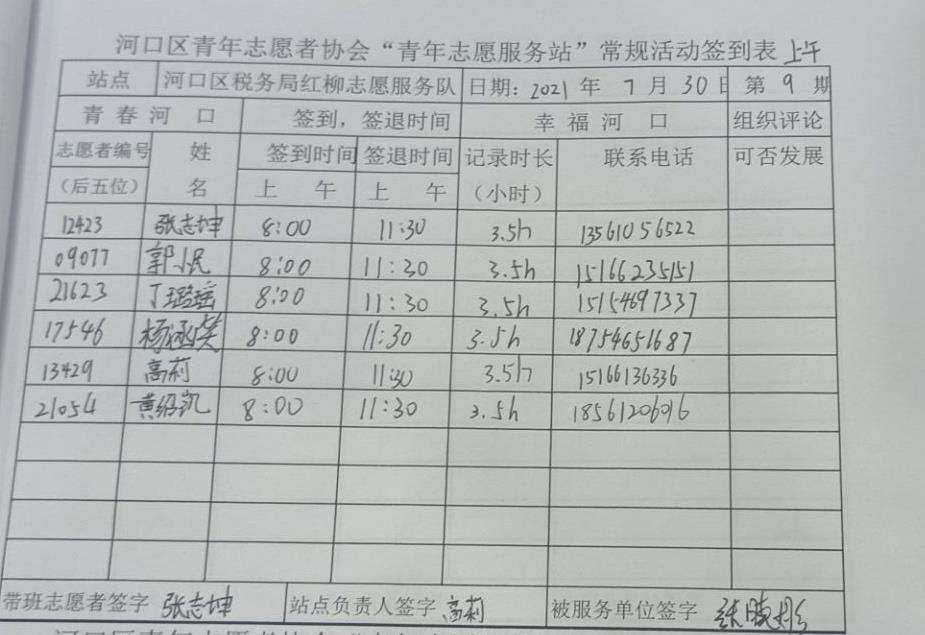 河口区青年志愿者协会“青年志愿服务站”常规活动签到表 上午
站点 河口区税务局红柳志愿服务队 日期：2021 年 7 月 30 日 第 9 期
青春河口 签到，签退时间 幸福河口 组织评论
志愿者编号 姓 签到时间 签退时间 记录时长 联系电话 可否发展
（后五位） 名 上午 上午 （小时）
12423 张志坤 8:00 11:30 3.5h 13561056522
09077 郭小民 8:00 11:30 3.5h 15166235151
21623 丁璐瑶 8:00 11:30 3.5h 15154697337
17546 杨涵笑 8:00 11:30 3.5h 18754651687
13429 高莉 8:00 11:30 3.5h 15166136336
21054 黄绍凯 8:00 11:30 3.5h 18561206016
带班志愿者签字 张志坤 站点负责人签字 高莉 被服务单位签字 张